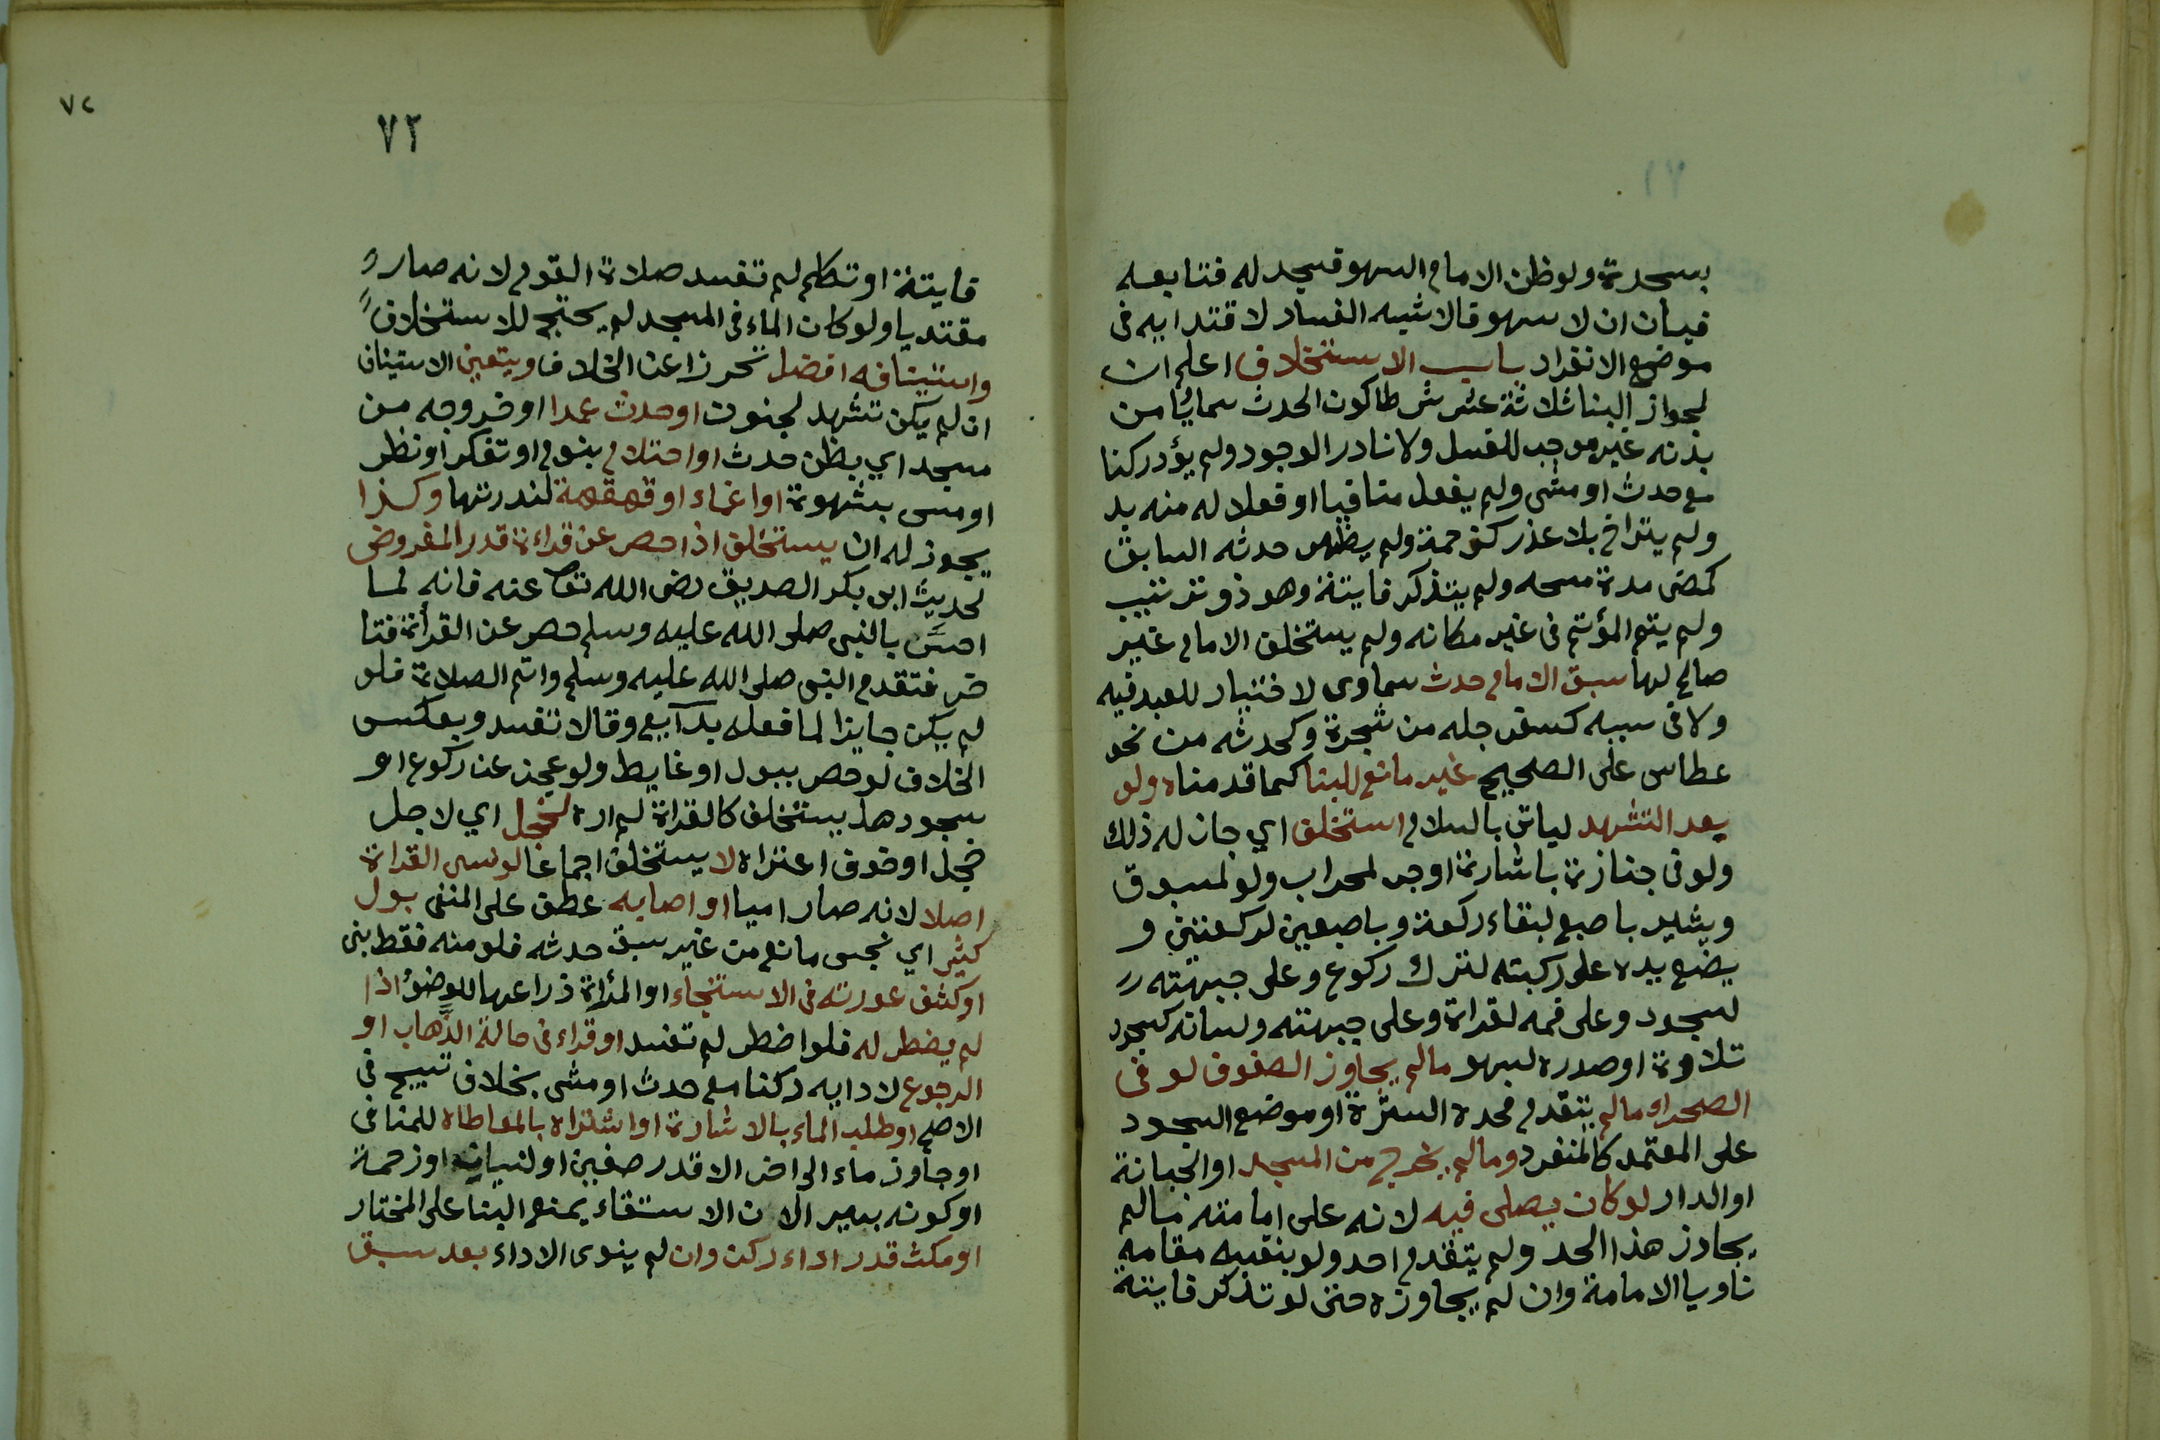 بسجدة ولو ظن الامام السهو فسجد له فتابعه
فبان ان لا سهو فالاشبه الفساد لاقتدايه فى
موضع الانفراد باب الاستخلاف اعلم ان
لجواز البنا ثلاثة عشر شرطا كون الحدث سمائيا من
بدنه غير موجب للغسل ولا نادر الوجود ولم يؤد ركنا
مع حدث او مشى ولم يفعل منافيا او فعلا له منه بد
ولم يتراخ بلا عذر كزحمة ولم يظهر حدثه السابق
كمضى مدة مسحه ولم يتذكر فايتة وهو ذو ترتيب
ولم يتم المؤتم فى غير مكانه ولم يستخلف الامام غير
صالح لها سبق الامام حدث سماوى لا اختيار للعبد فيه
ولا فى سببه كسفرجله من شجرة وكحدثه من نحو
عطاس على الصحيح غير مانع للبنا كما قدمناه ولو
بعد التشهد لياتى بالسلام استخلف اي جاز له ذلك
ولو فى جنازة باشارة او جر لمحراب ولو لمسبوق
ويشير باصبع لبقاء ركعة وباصبعين لركعتين و
يضع يده على ركبته لترك ركوع وعلى جبهته
لسجود وعلى فمه لقراة وعلى جبهته ولسانه لسجود
تلاوة او صدره لسهو مالم يجاوز الصفوف لو فى
الصحراء ومالم يتقدم فحده السترة او موضع السجود
على المعتمد كالمنفرد ومالم يخرج من المسجد او الجبانة
او الدار لو كان يصلى فيه لانه على امامته مالم
يجاوز هذا الحد ولم يتقدم احد ولو بنفسه مقامه
ناويا الامامة وان لم يجاوزه حتى لو تذكر فايتة
٧٢
٧٢
فايتة او تكلم لم تفسد صلاة القوم لانه صار
مقتديا ولو كان الماء فى المسجد لم يحتج للاستخلاف
واستينافه افضل تحرزا عن الخلاف ويتعين الاستيناف
ان لم يكن تشهد لجنون او حدث عمدا او خروجه من
مسجد اي بظن حدث او احتلام بنوم او تفكر او نظر
او مس بشهوة او اغماء او قهقهة لندرتها وكذا
يجوز له ان يستخلف اذا حصر عن قراءة قدر المفروض
لحديث ابى بكر الصديق رضى الله تعا عنه فانه لما
احس بالنبى صلى الله عليه وسلم حصر عن القرأة فتا
خر فتقدم النبى صلى الله عليه وسلم واتم الصلاة فلو
لم يكن جايزا لما فعله بدآيع وقالا تفسد وبعكس
الخلاف لو حصر ببول او غايط ولو عجز عن ركوع او
سجود هل يستخلف كالقراة لم اره لخجل اي لاجل
خجل او خوف اعتراه لا يستخلف اجماعا لو نسى القراة
اصلا لانه صار اميا او اصابه عطف على المنفى بول
كثير اي نجس مانع من غير سبق حدثه فلو منه فقط بنى
او كشف عورته فى الاستنجاء او المرأة ذراعها للوضوء اذا
لم يضطر له فلو اضطر لم تفسد او قراء فى حالة الذهاب او
الرجوع لادايه ركنا مع حدث او مشى بخلاف تسبيح فى
الاصح او طلب الماء بالاشارة او اشتراه بالمعاطاة للمنافى
او جاوز ماء الى اخر الا قدر صفين او لنسيانه او زحمة
او كونه بيير الان الاستقاء يمنع البنا على المختار
او مكث قدر اداء ركن وان لم ينوى الاداء بعد سبق